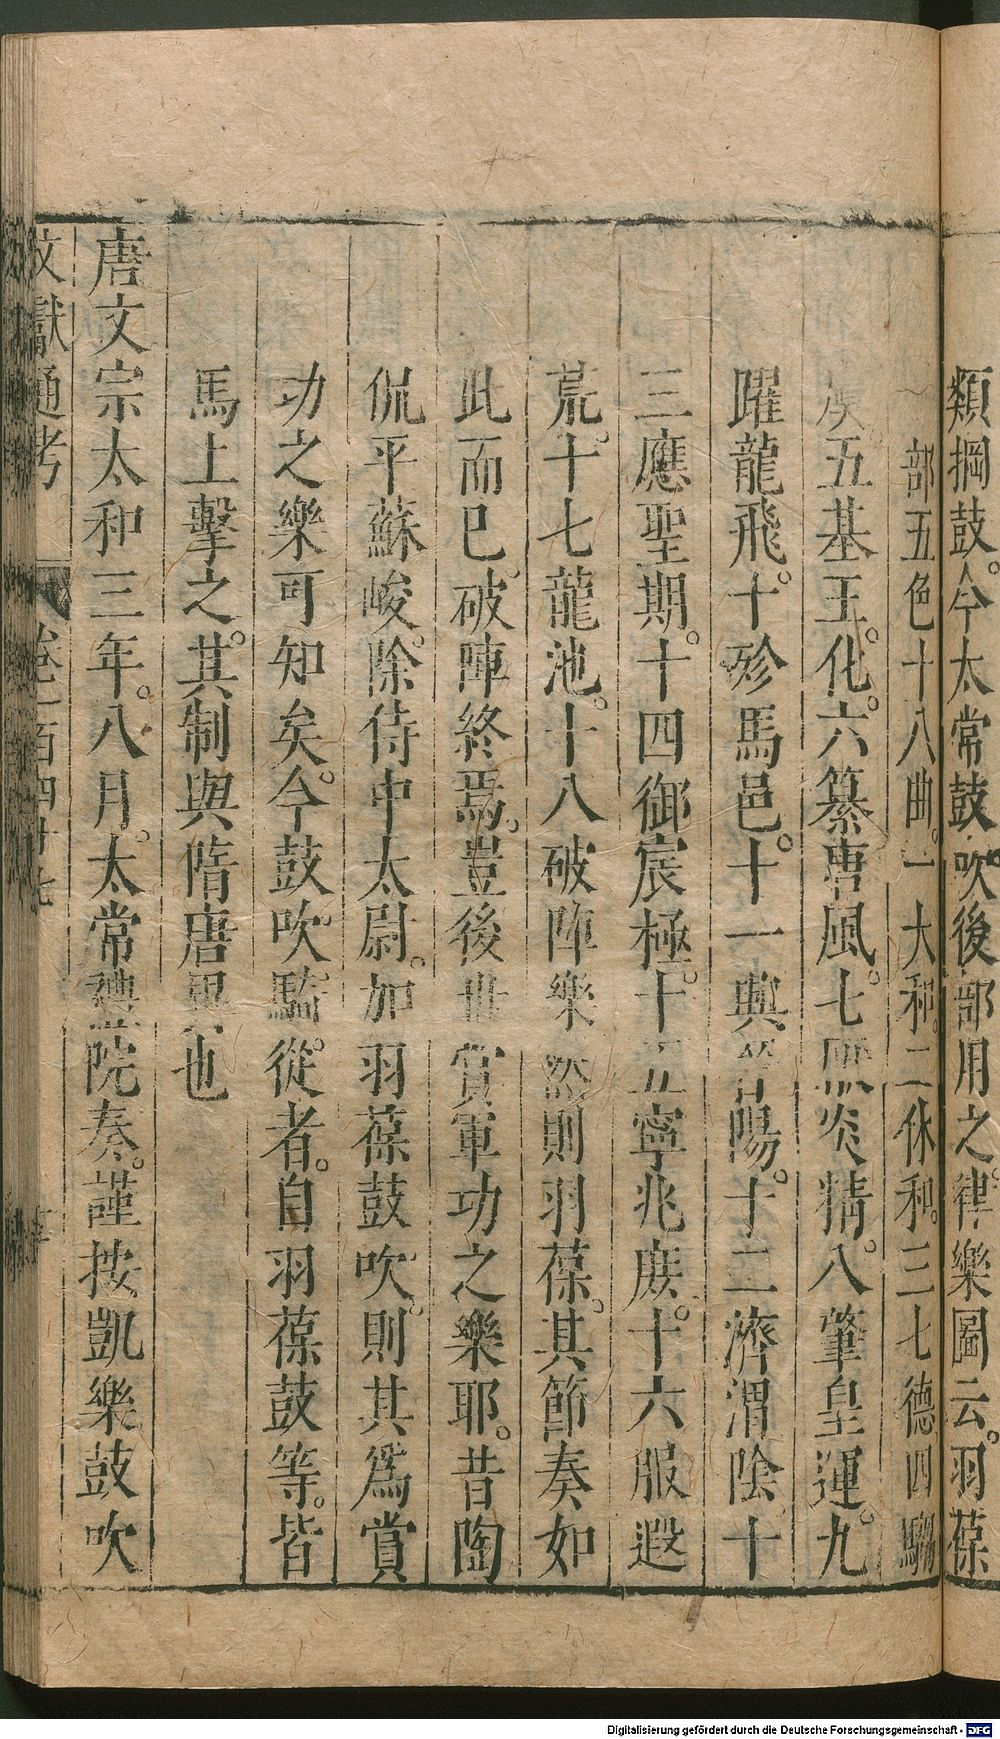 類掆鼓。今太常鼓吹後部用之。律樂圖云。羽葆
部五色十八曲。一大和。二休和。三七德四騶
虞。五基王化。六纂唐風。七厭炎精。八肇皇運。九
躍龍飛。十殄馬邑。十一興晉陽。十二濟渭陰十
三應聖期。十四御宸極。十五寧兆庶。十六服遐
荒。十七龍池。十八破陣樂 然則羽葆。其節奏如
此而已。破陣終焉。豈後世賞軍功之樂耶。昔陶
侃平蘇峻。除侍中太尉。加羽葆鼓吹。則其爲賞
功之樂可知矣。今鼓吹騎從者。自羽葆鼓等。皆
馬上擊之。其制與隋唐異也
唐文宗太和三年。八月。太常禮院奏。謹按凱樂鼓吹
文獻通考 卷一百四十七
Digitalisierung gefördert durch die Deutsche Forschungsgemeinschaft - DFG